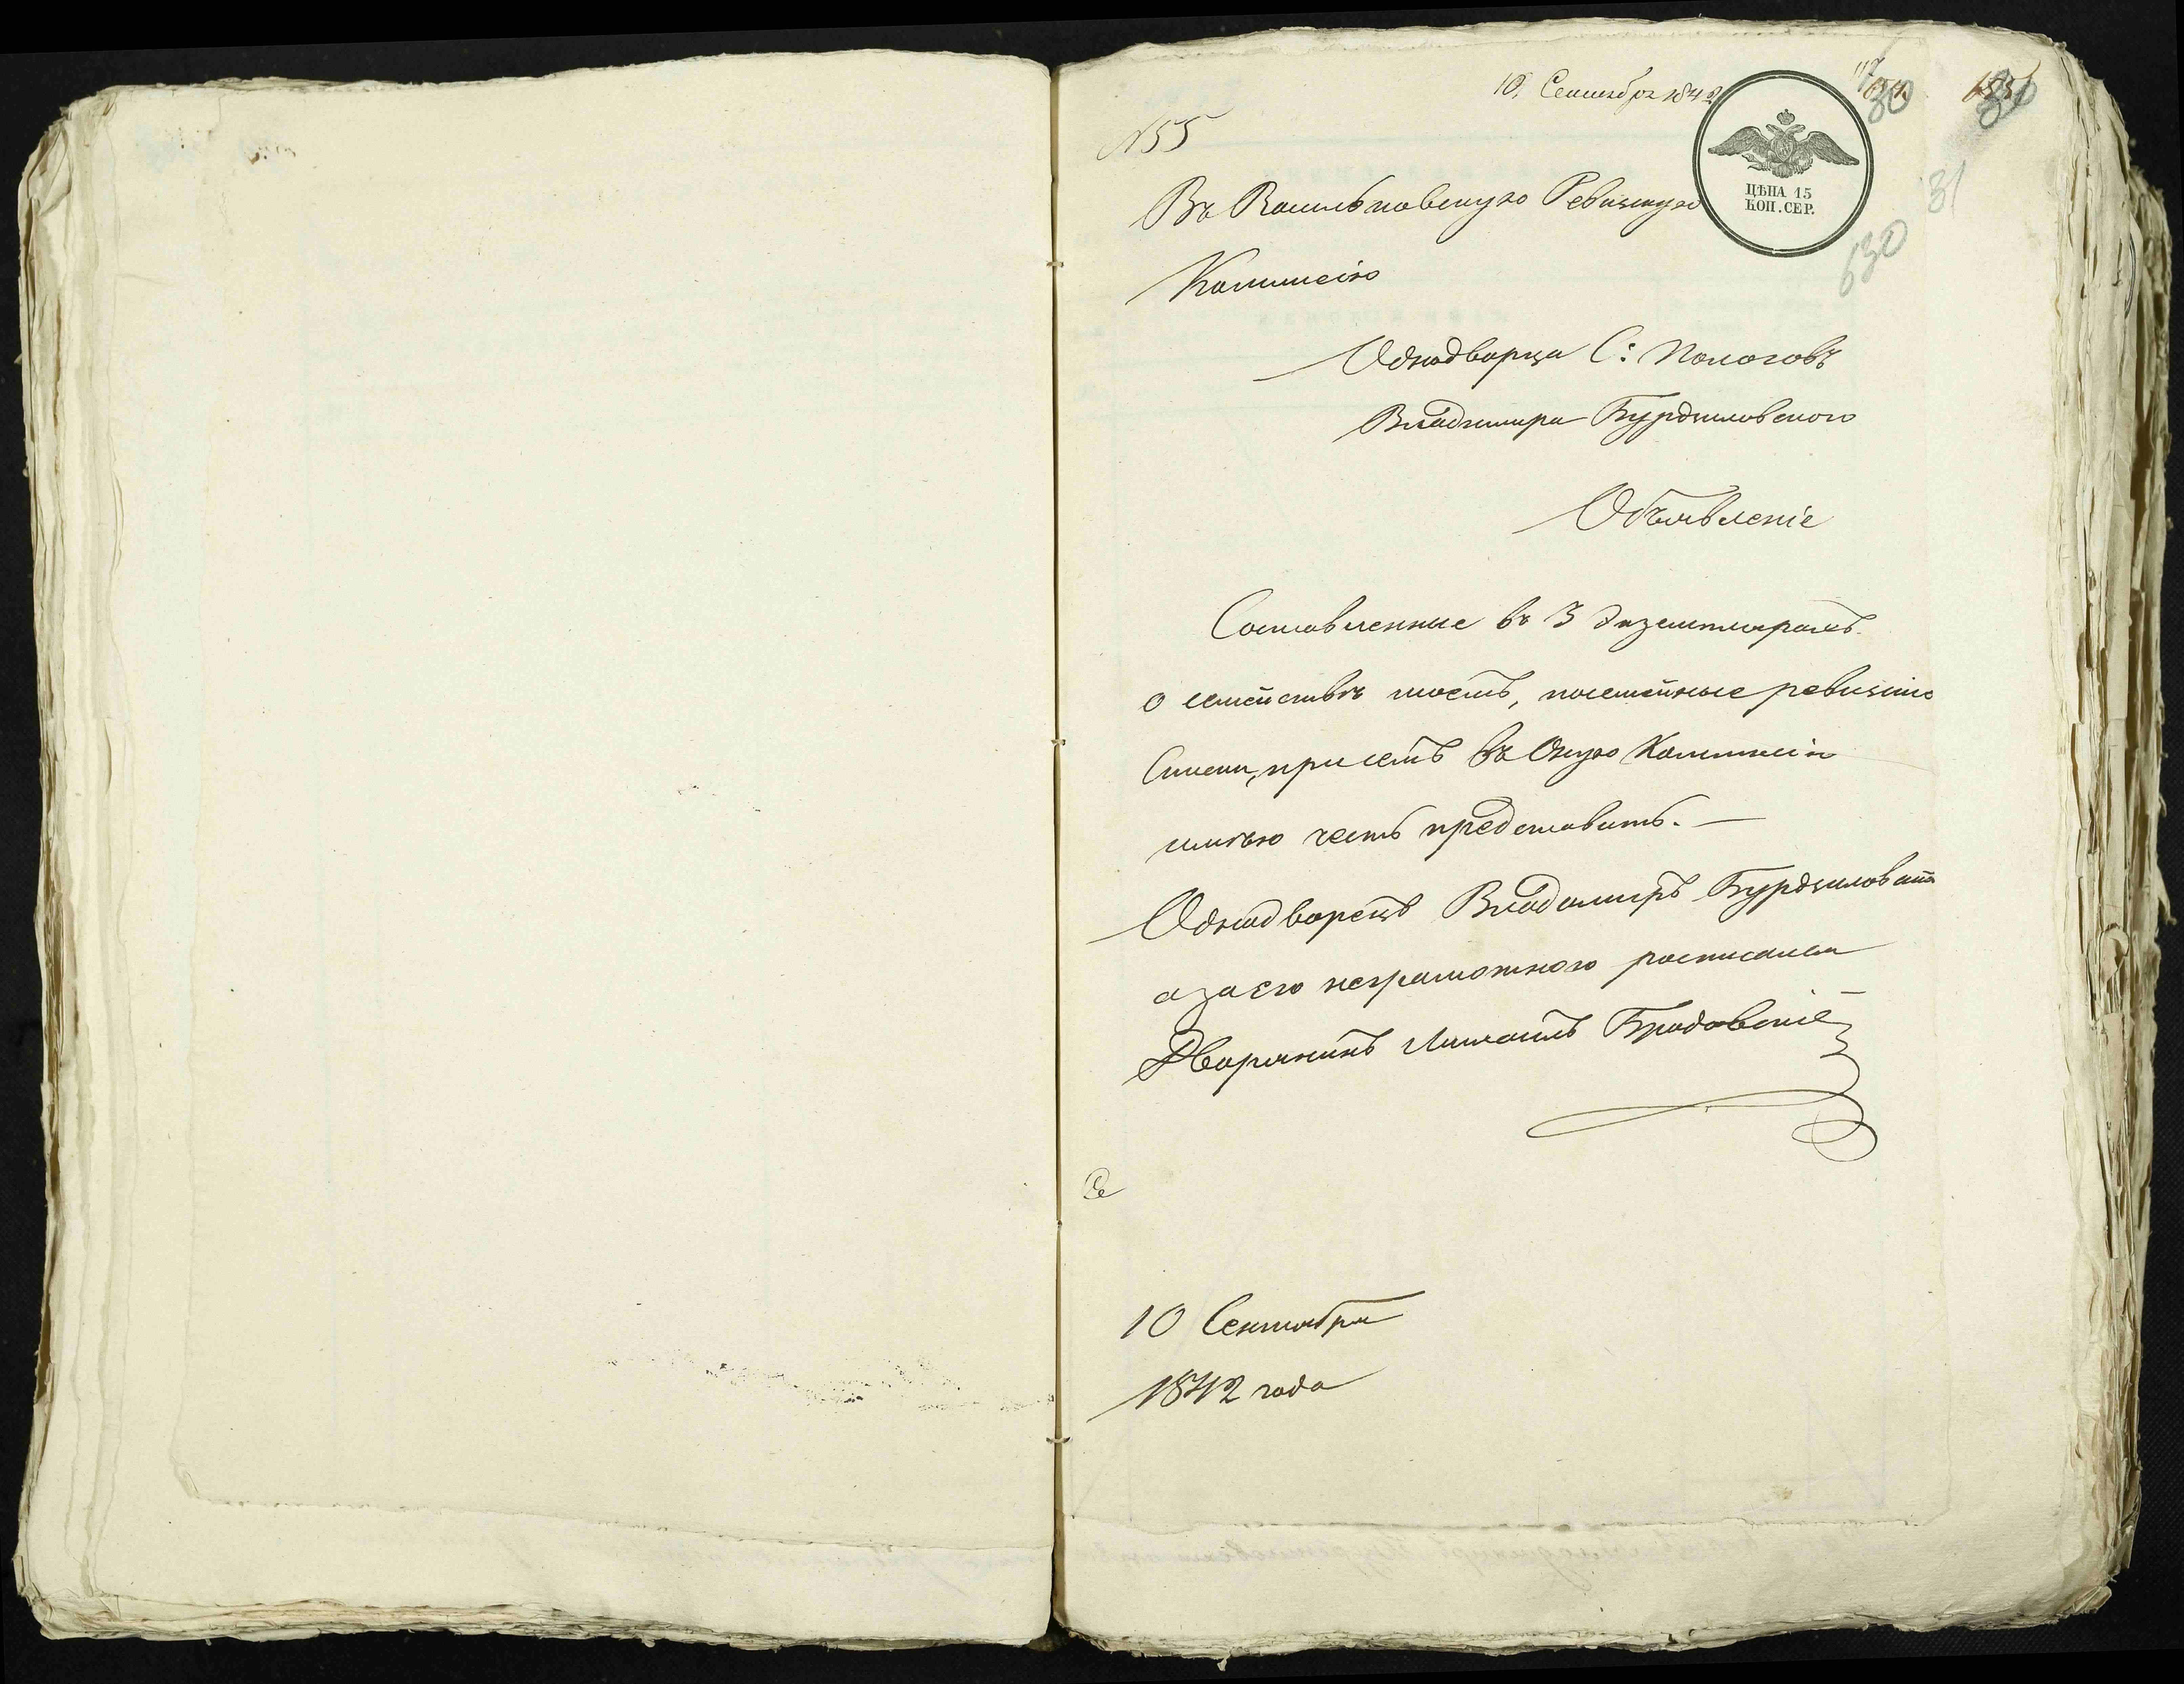 10. Сентября 1842
№ 55
Въ Васильковскую Ревизскую
ЦѢНА 15
КОП. СЕР.
30
31
630
Коммисію
Однодворца С: Пологовъ
Владимира Бурдзиловского
Объявленіе
Составленные въ 3 экземплярахъ
о семействѣ моемъ, посемейные ревизскіе
Списки, присемъ въ Оную Коммисію
имѣю честь представить. —
Однодворецъ Владимиръ Бурдзиловскій
а за его неграмотного росписался
Дворянинъ Бродовскій
Се
10 Сентября
1842 года